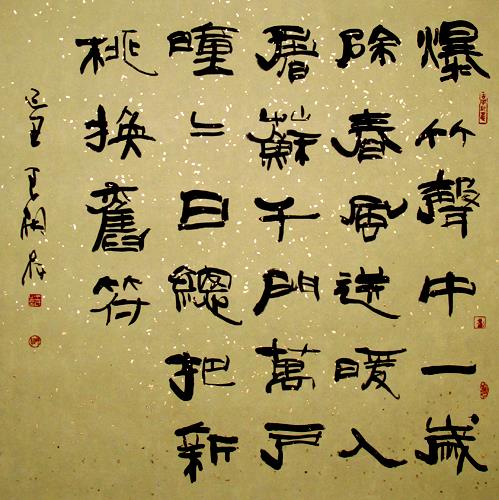 爆竹聲中一歲
除春風送暖入
屠蘇千門萬戶
曈々日總把新
桃換舊符
己丑